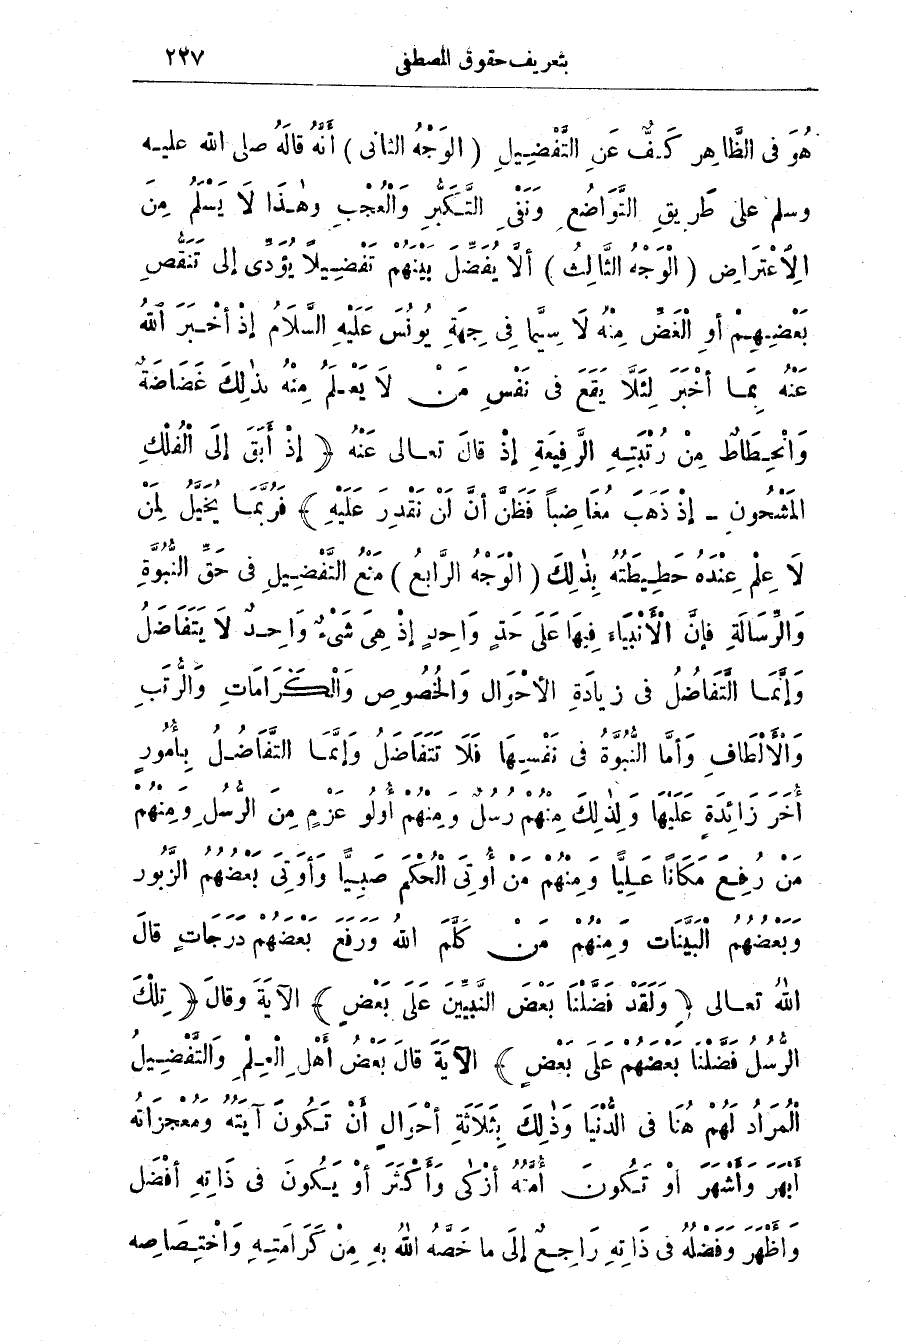 بتعريف حقوق المصطفى ٢٢٧
هُوَ فى الظَّاهِرِ كَفٌّ عَنِ التَّفْضِيلِ ( الوَجْهُ الثانى ) أَنَّهُ قالَهُ صلى الله عليه
وسلم على طَرِيقِ التَّوَاضُعِ وَنَفْىِ التَّكَبُّرِ وَالْعُجْبِ وهٰذَا لَا يَسْلَمُ مِنَ
الِاعْتِرَاضِ ( الْوَجْهُ الثَّالِثُ ) ألَّا يُفَضِّلَ بَيْنَهُمْ تَفْضِيلاً يُؤَدِّى إلى تَنَقُّصِ
بَعْضِهِمْ أوِ الْغَضِّ مِنْهُ لَا سِيَّمَا فى جِهَةِ يُونُسَ عَلَيْهِ السَّلَامُ إذْ أخْبَرَ اللهُ
عَنْهُ بِمَا أخْبَرَ لِئَلَّا يَقَعَ فى نَفْسِ مَنْ لَا يَعْلَمُ مِنْهُ بذٰلِكَ غَضَاضَةٌ
وَانْحِطَاطٌ مِنْ رُتْبَتِهِ الرَّفِيعَةِ إذْ قالَ تعالى عَنْهُ ﴿ إذْ أَبَقَ إلَى الْفُلْكِ
المَشْحُونِ - إذْ ذَهَبَ مُغَاضِباً فَظَنَّ أنَّ لَنْ نَقْدِرَ عَلَيْهِ ﴾ فَرُبَّمَا يُخَيَّلُ لِمَنْ
لَا عِلْمَ عِنْدَهُ حَطِيطَتُهُ بِذٰلِكَ ( الْوَجْهُ الرَّابِعُ ) مَنْعُ التَّفْضِيلِ فى حَقِّ النُّبُوَّةِ
وَالرِّسَالَةِ فإنَّ الْأَنْبِيَاءَ فِيهَا عَلَى حَدٍّ وَاحِدٍ إذْ هِىَ شَىْءٌ وَاحِدٌ لَا يَتَفَاضَلُ
وَإنَّمَا التَّفَاضُلُ فى زِيَادَةِ الأحْوَالِ وَالخُصُوصِ وَالْكَرَامَاتِ وَالرُّتَبِ
وَالْأَلْطَافِ وَأمَّا النُّبُوَّةُ فى نَفْسِهَا فَلَا تَتَفَاضَلُ وَإنَّمَا التَّفَاضُلُ بِأُمُورٍ
أُخَرَ زَائِدَةٍ عَلَيْهَا وَلِذٰلِكَ مِنْهُمْ رُسُلٌ وَمِنْهُمْ أُولُو عَزْمٍ مِنَ الرُّسُلِ وَمِنْهُمْ
مَنْ رُفِعَ مَكَانًا عَلِيًّا وَمِنْهُمْ مَنْ أُوتِىَ الْحُكْمَ صَبِيًّا وَأُوتِىَ بَعْضُهُمُ الزَّبُور
وَبَعْضُهُمُ الْبَيِّنَاتِ وَمِنْهُمْ مَنْ كَلَّمَ اللهُ وَرَفَعَ بَعْضَهُمْ دَرَجَاتٍ قالَ
اللهُ تعالى ﴿ وَلَقَدْ فَضَّلْنَا بَعْضَ النَّبِيِّينَ عَلَى بَعْضٍ ﴾ الآيَةَ وقالَ ﴿ تِلْكَ
الرُّسُلُ فَضَّلْنَا بَعْضَهُمْ عَلَى بَعْضٍ ﴾ الآيَةَ قالَ بَعْضُ أهْلِ الْعِلْمِ وَالتَّفْضِيلُ
الْمُرَادُ لَهُمْ هُنَا فى الدُّنْيَا وَذٰلِكَ بِثَلَاثَةِ أحْوَالٍ أنْ تَكُونَ آيَتُهُ وَمُعْجِزَاتُهُ
أَبْهَرَ وَأَشْهَرَ أوْ تَكُونَ أُمَّتُهُ أزْكَى وَأَكْثَرَ أوْ يَكُونَ فى ذَاتِهِ أفْضَلَ
وَأظْهَرَ وَفَضْلُهُ فى ذَاتِهِ رَاجِعٌ إلَى ما خَصَّهُ اللهُ بِهِ مِنْ كَرَامَتِهِ وَاخْتِصَاصِهِ